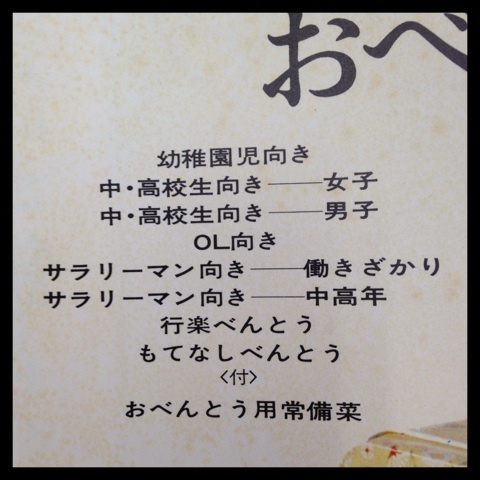 おべ
幼稚園児向き
中・高校生向き――女子
中・高校生向き――男子
OL向き
サラリーマン向き――働きざかり
サラリーマン向き――中高年
行楽べんとう
もてなしべんとう
〈付〉
おべんとう用常備菜